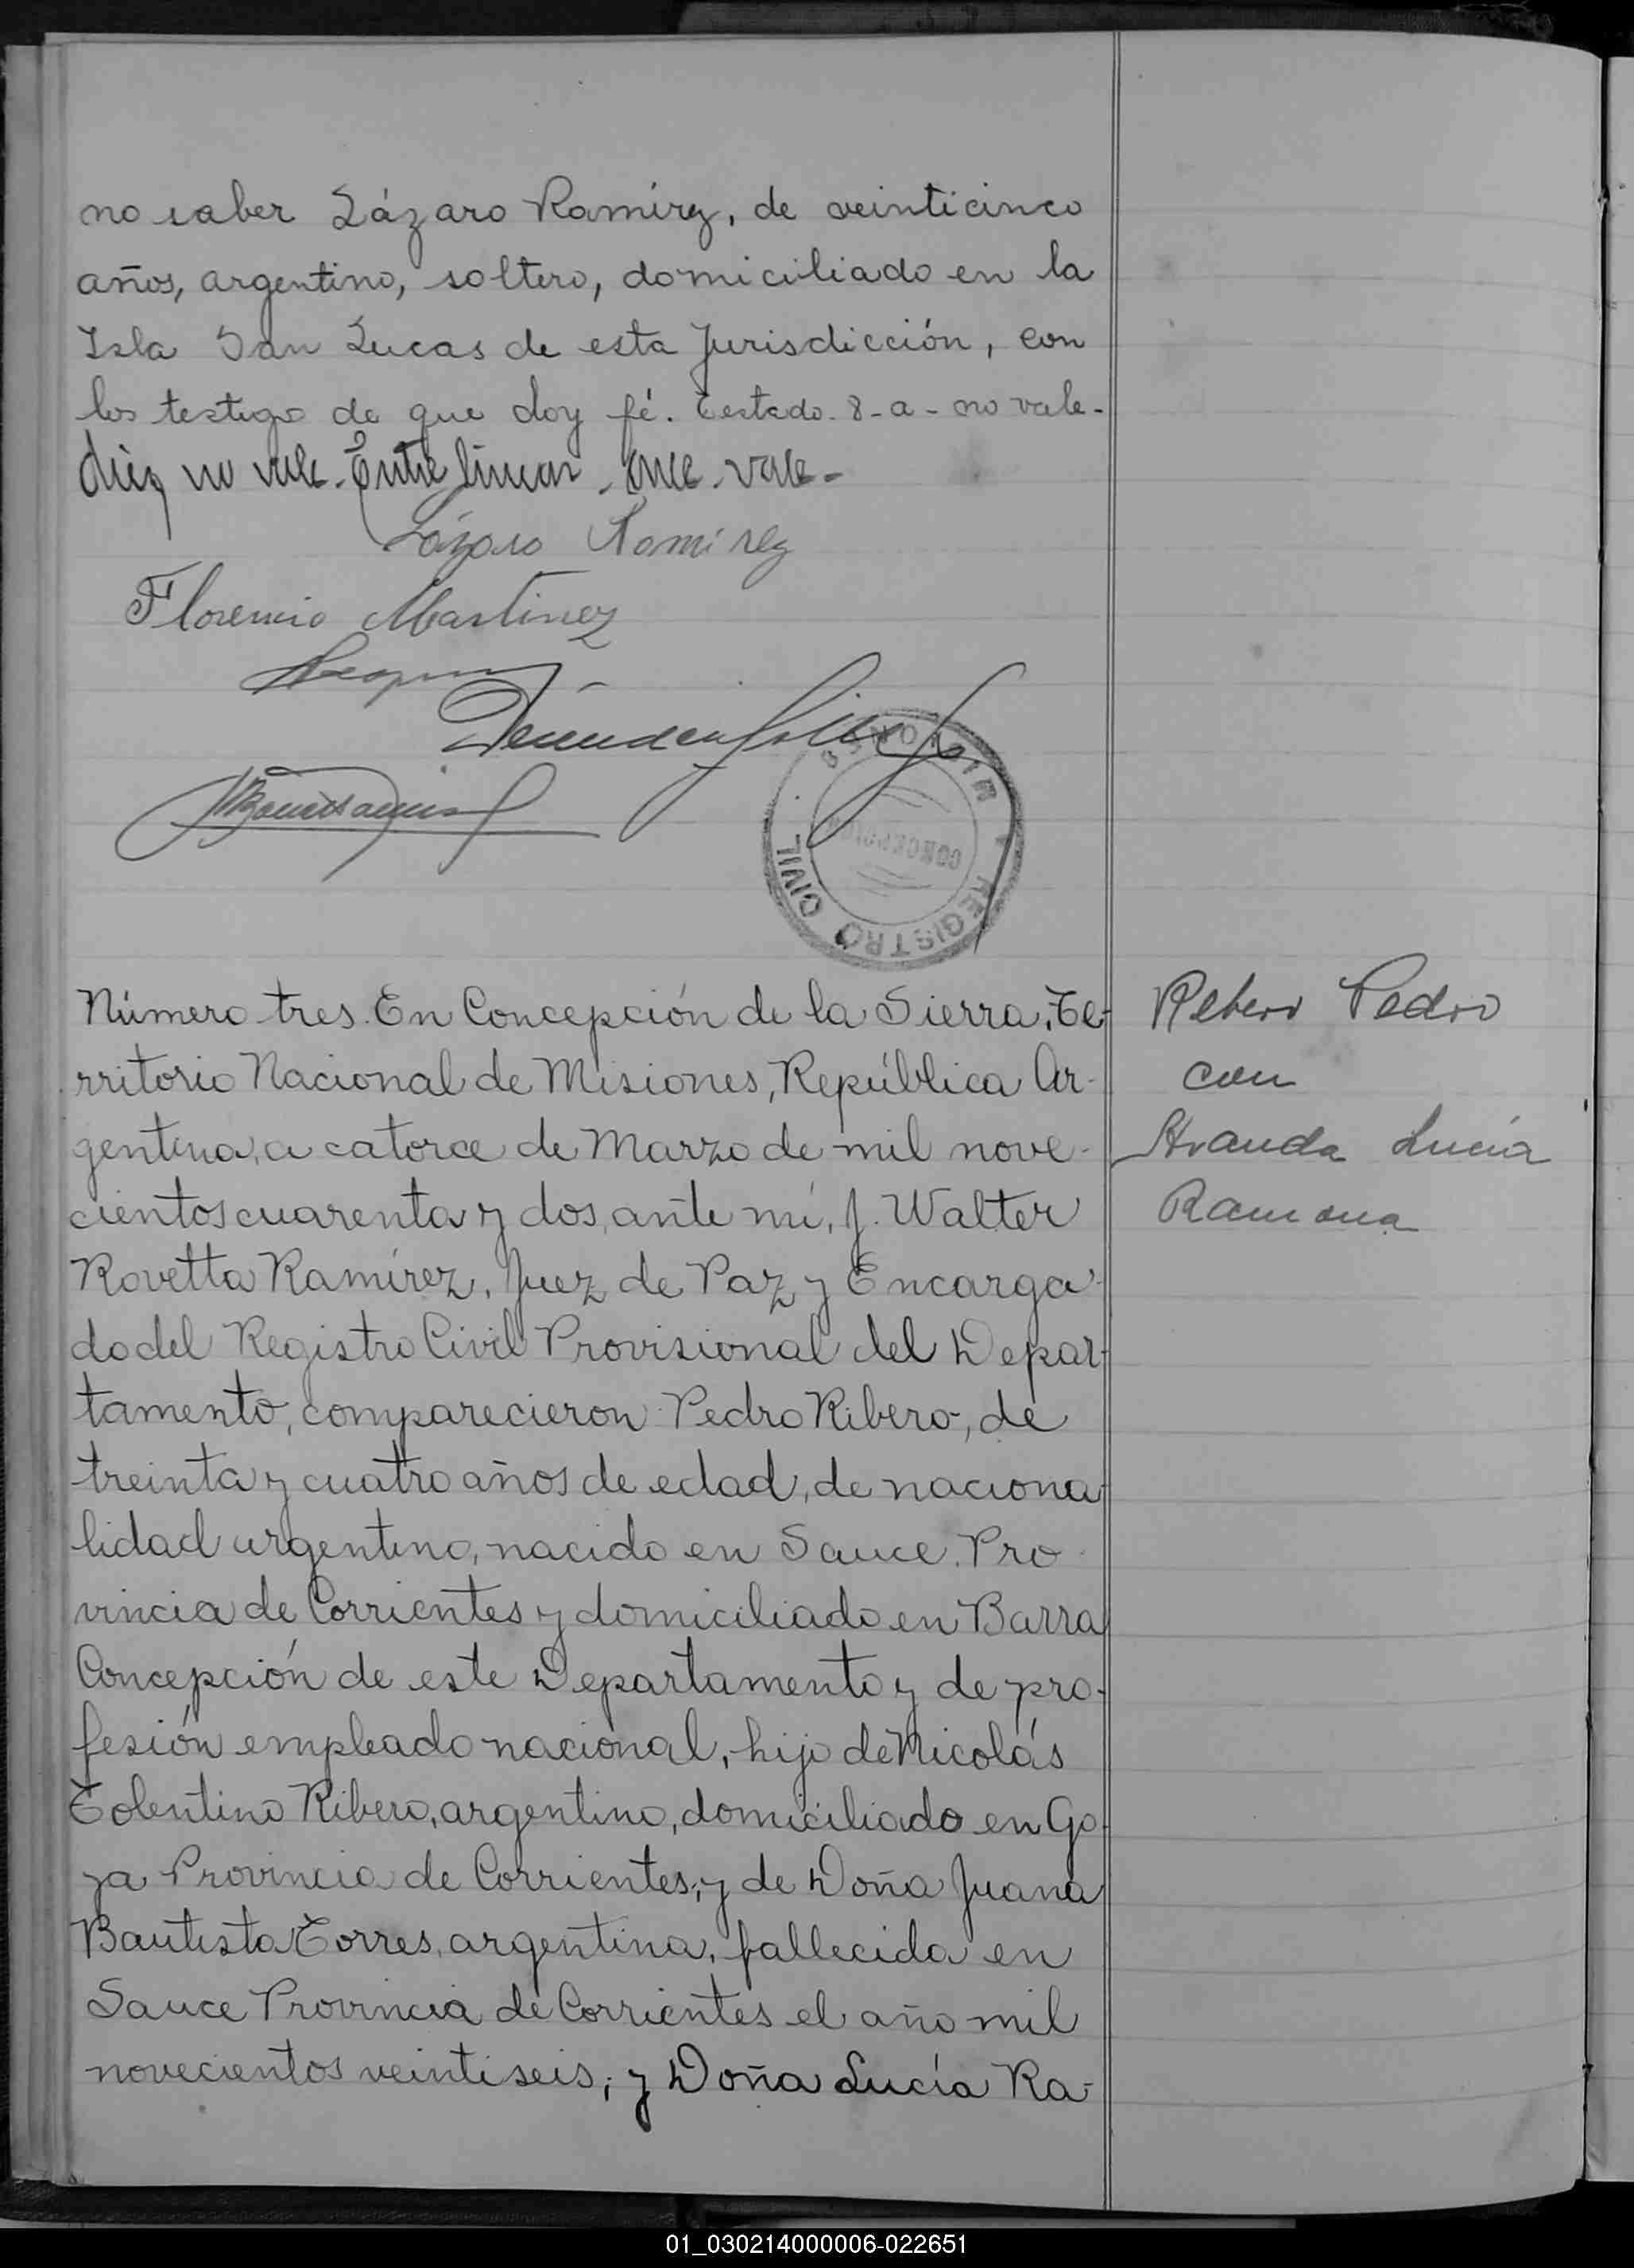 no saber Lázaro Ramírez, de veinticinco
años, argentino, soltero, domiciliado en la
Isla San Lucas de esta Jurisdicción, con
los testigo de que doy fé. Testado. 8-a- no vale-
diez no vale. Entre lineas - once - vale -
Lázaro Ramirez
Florencio Martinez
REGISTRO CIVIL
CONCEPCION
MISIONES
Número tres. En Concepción de la Sierra, Te-
rritorio Nacional de Misiones, República Ar-
gentina, a catorce de Marzo de mil nove-
cientos cuarenta y dos, ante mí, J. Walter
Rovetta Ramírez, Juez de Paz y Encarga-
do del Registro Civil Provisional del Depar-
tamento, comparecieron Pedro Ribero, de
treinta y cuatro años de edad, de naciona
lidad argentino, nacido en Sauce, Pro-
vincia de Corrientes y domiciliado en Barra
Concepción de este Departamento y de pro-
fesión empleado nacional, hijo de Nicolás
Tolentino Ribero, argentino, domiciliado en Go-
ya Provincia de Corrientes, y de Doña Juana
Bautista Torres, argentina, fallecida en
Sauce Provincia de Corrientes el año mil
novecientos veintiseis; y Doña Lucía Ra-
Ribero Pedro
con
Aranda Lucía
Ramona
01_030214000006-022651